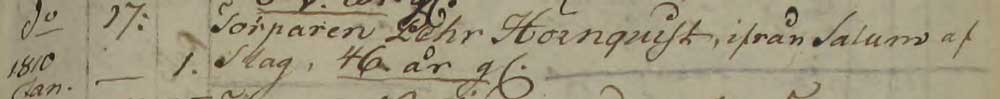 do 17: Torparen Pehr Hörnquist, ifrån Salum af
1810 — 1. Slag, 46. år g.
Jan.